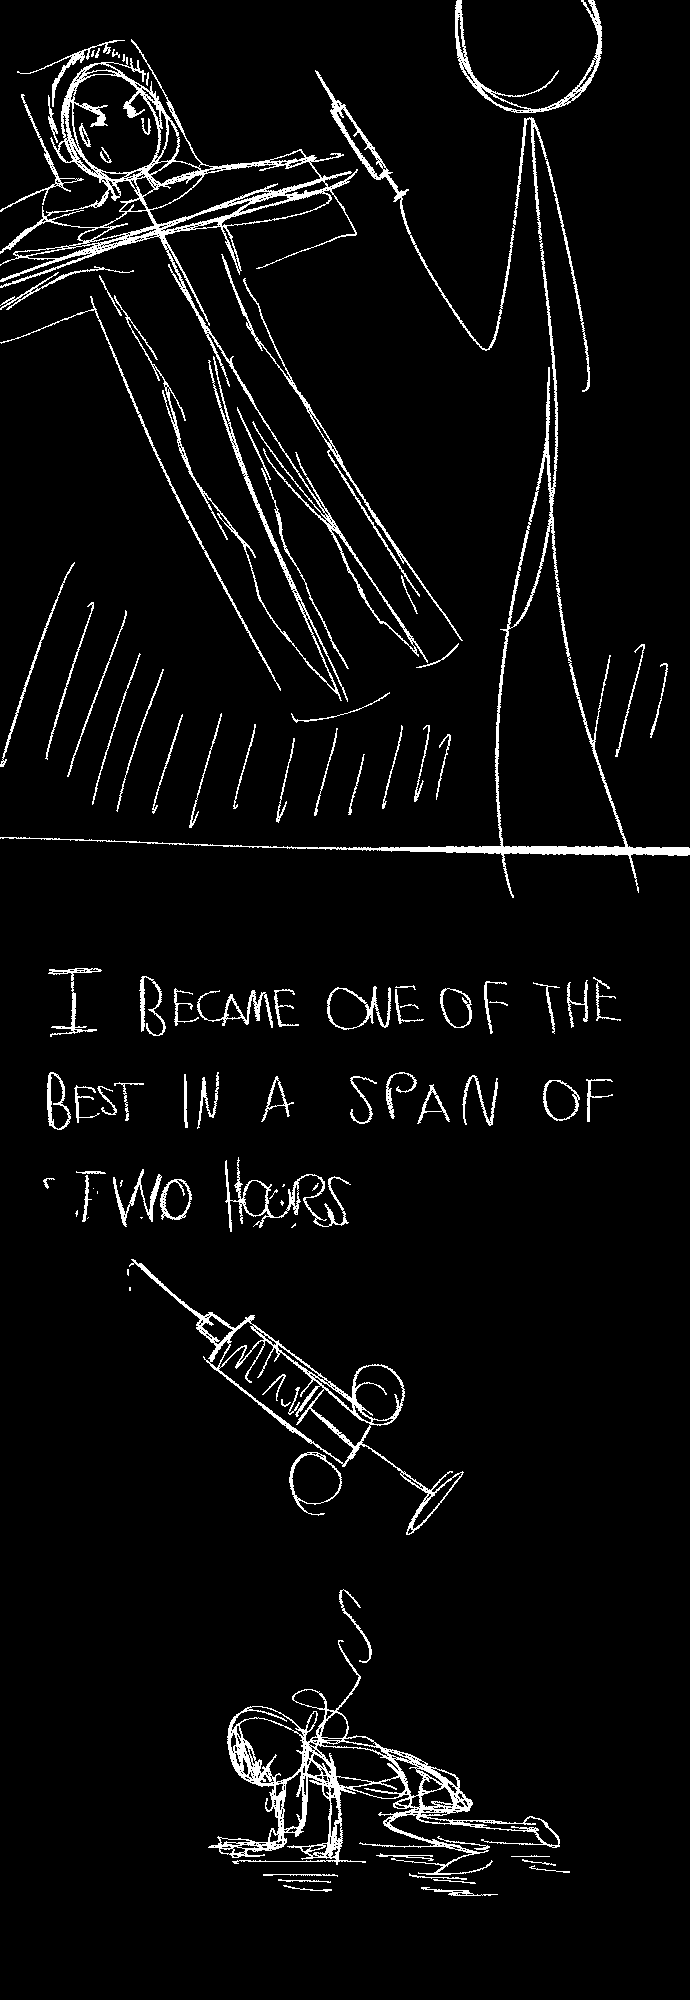 I BECAME ONE OF THE
BEST IN A SPAN OF
TWO HOURS
S